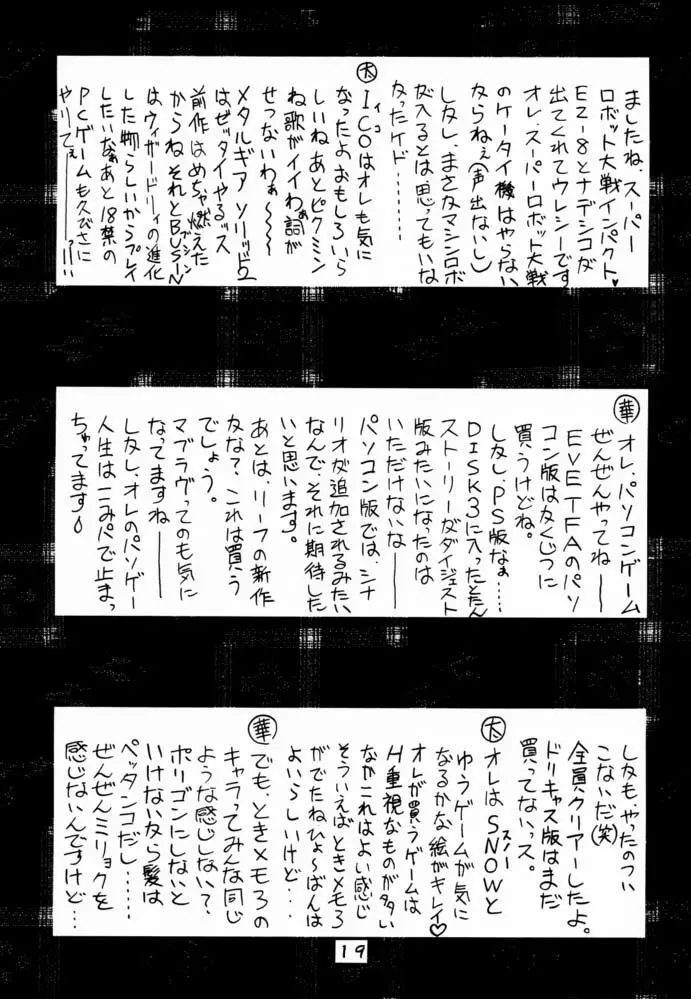 ましたね、スーパー
ロボット大戦インパクト♥
EZ-8とナデシコが
出てくれてウレシーです
オレ、スーパーロボット大戦
のケータイ機はやらない
ならねぇ(声出ないし)
しかし、まさかマシンロボ
が入るとは思ってもいな
かったケド………
太
ICOはオレも気に
イコ
なったよおもしろいら
しいねあとピクミン
ね歌がイイわぁ詞が
せつないわぁ〜〜〜
メタルギアソリッド2
はぜッタイやるッス
前作はめちゃ燃えた
からねそれとBUSIN
ブシン
はウィザードリィの進化
した物らしいからプレイ
したいなぁあと18禁の
PCゲームも久びさに
やりてぇ――――っ!!!
華
オレ、パソコンゲーム
ぜんぜんやってねー
EVE TFAのパソ
コン版はかくじつに
買うけどね。
しかし、PS版なぁ……
DISK3に入ったとたん
ストーリーがダイジェスト
版みたいになったのは
いただけないなー
パソコン版では、シナ
リオが追加されるみたい
なんで、それに期待した
いと思います。
あとは、リーフの新作
かな?、これは買う
でしょう。
マブラヴってのも気に
なってますね――
しかし、オレのパソゲー
人生はこみパで止まっ
ちゃってます
しかも、やったのつい
こないだ(笑)
全員クリアーしたよ。
ドリキャス版はまだ
買ってないっス。
太
オレはSNOWと
スノー
ゆうゲームが気に
なるかな絵がキレイ♡
オレが買うゲームは
H重視なものが多い
なかこれはよい感じ
そういえばときメモ3
がでたねひょ〜ばんは
よいらしいけど…
華
でも、ときメモ3の
キャラってみんな同じ
ような感じしない?
ポリゴンにしないと
いけないから髪は
ペッタンコだし……
ぜんぜんミリョクを
感じないんですけど…
19